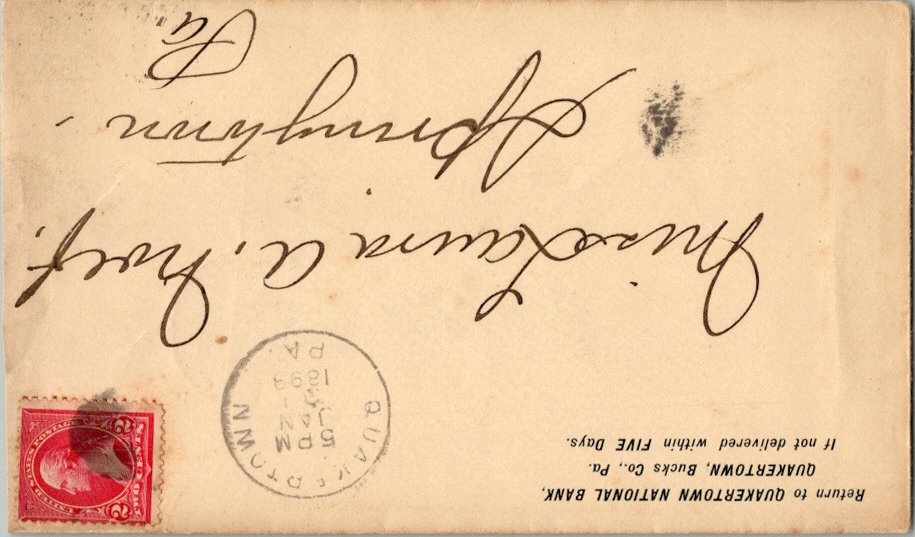 Return to QUAKERTOWN NATIONAL BANK,
QUAKERTOWN, BUCKS CO., Pa.
If not delivered within FIVE Days.
QUAKERTOWN
5 PM
JAN
1899
PA.
UNITED STATES POSTAGE
2 2
Miss Laura A.
Springtown
Pa